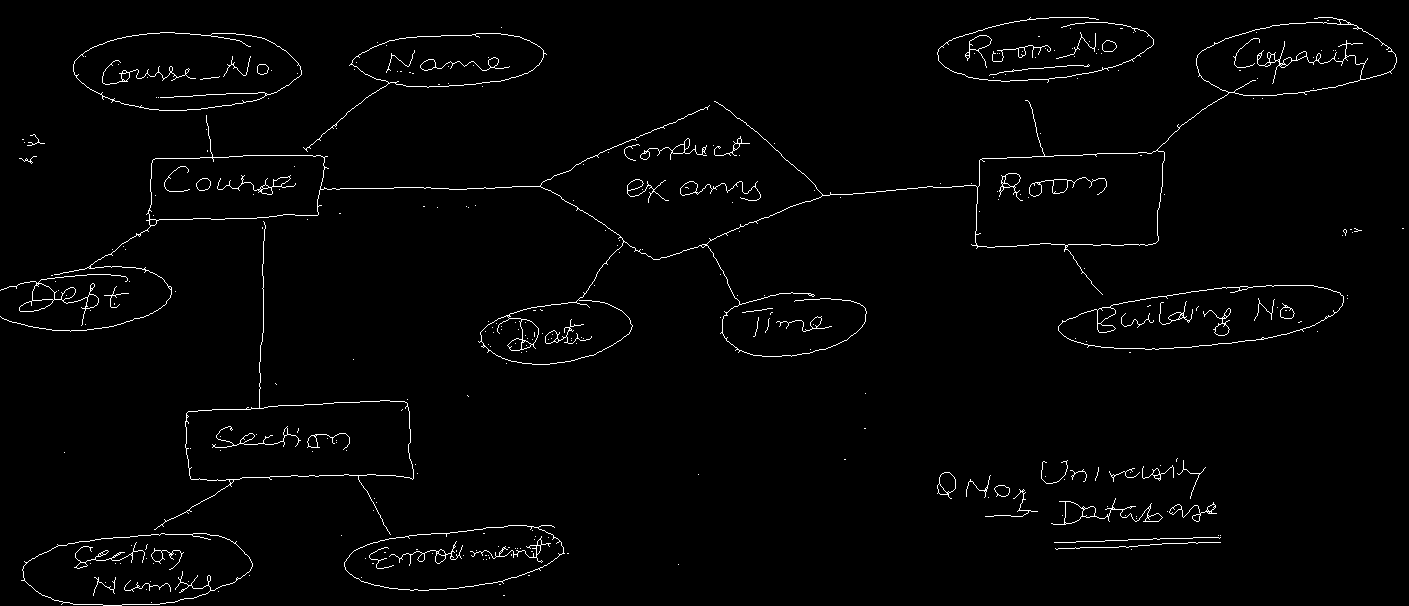 Course_No
Name
Room_No
Capacity
Course
conduct
exams
Room
Dept
Date
Time
Building No.
Section
Section
Number
Enrollment
QNo1 University
Database